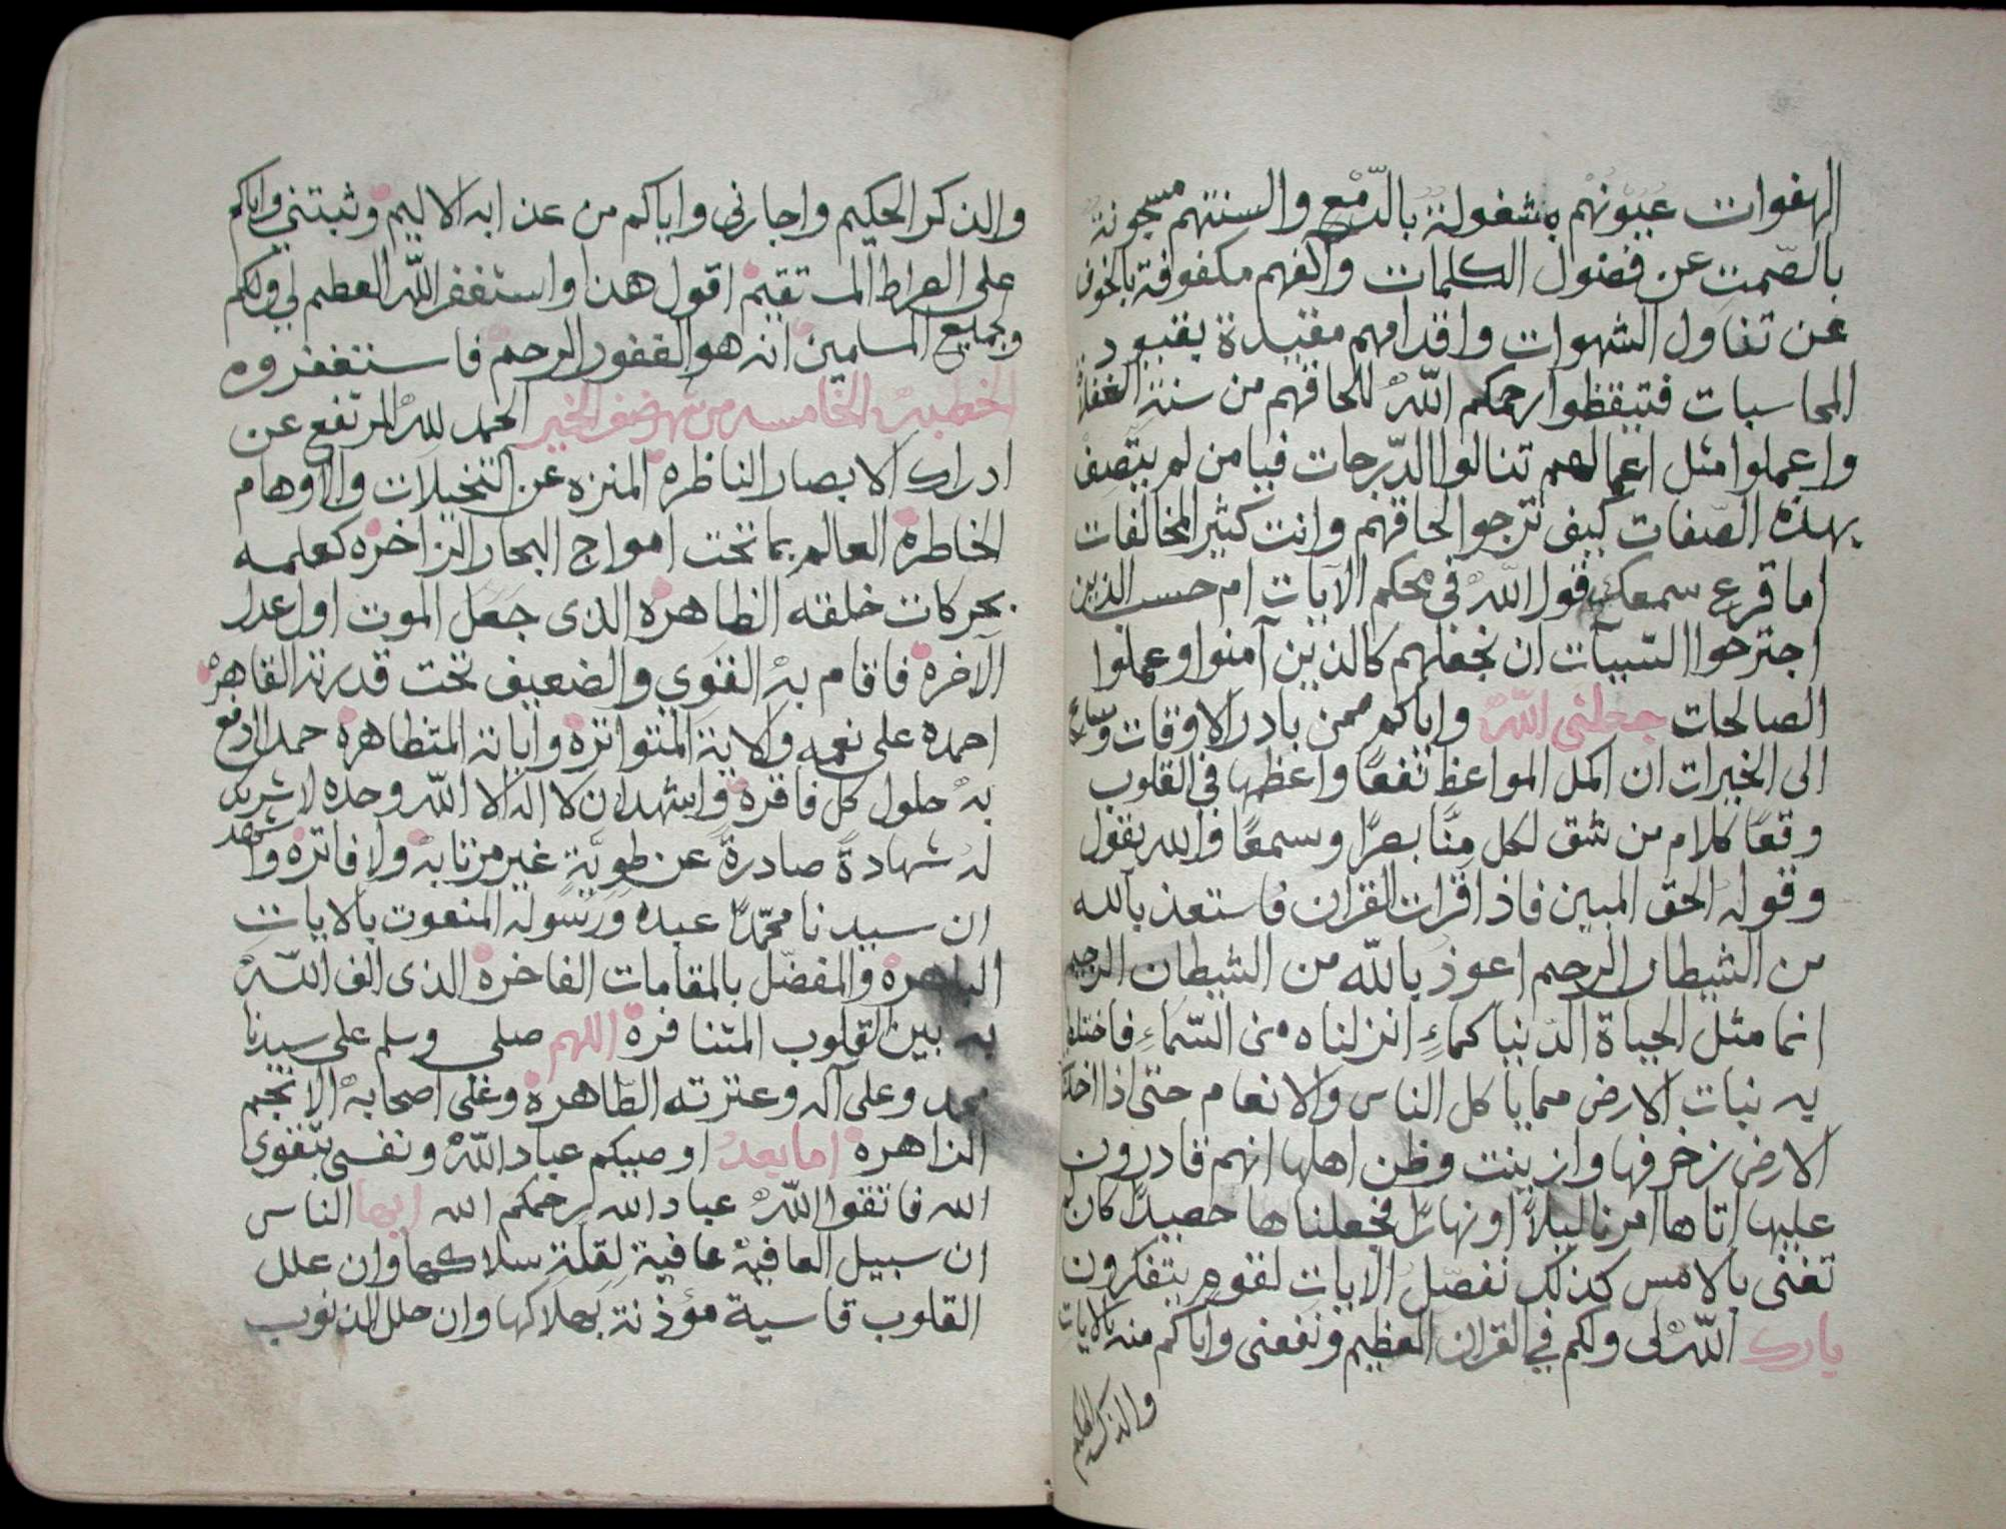 الهفوات عيونهم مشغولة بالدّمع والسنتهم مسجونة
بالصّمت عن فضول الكلمات واكفهم مكفوفة بالخوف
عن تناول الشهوات واقدامهم مقيدة بقيود
المحاسبات فتيقظوا رحمكم اللّه للحاقهم من سنة الغفلاة
واعملوا مثل اعمالهم تنالوا الدّرجات فيا من لم يتصف
بهذه الصّفات كيف ترجوا لحاقهم وانت كثير المخالفات
اما قرع سمعك قول اللّه في محكم الايات ام حسب الذين
اجترحوا السّيئات ان نجعلهم كالذين آمنوا وعملوا
الصالحات جعلني اللّه واياكم ممن بادر الاوقات وسارع
الى الخيرات ان اكمل المواعظ نفعًا واعظمها في القلوب
وقعًا كلام من شق لكل منّا بصرًا وسمعًا والله يقول
وقوله الحق المبين فاذا قرات القران فاستعذ بالله
من الشيطان الرجيم اعوذ باللّه من الشيطان الرجيم
انما مثل الحياة الدّنيا كماءٍ انزلناه من السّماءِ فاختلط
به نبات الارض مما ياكل الناس والانعام حتى اذا اخذت
الارض زخرفها وازينت وظن اهلها انهم قادرون
عليها اتاها امرنا ليلاً او نهارًا فجعلناها حصيدًا كان لم
تغنى بالامس كذلك نفصّل الايات لقوم يتفكرون
بارك اللّه لى ولكم في القران العظيم ونفعنى واياكم منه بالايات
والذكر الحكيم
والذكر الحكيم واجارنى واياكم من عذابه الاليم وثبتني واياكم
على الصراط المستقيم اقول هذا واستغفر اللّه العظيم لي ولكم
ولجميع المسلمين انه هو الغفور الرحيم فاستغفروه
الخطبة الخامسه من شهر صفر الخير الحمد للّه المرتفع عن
ادراك الابصار الناظره المنزه عن التخيلات والاوهام
الخاطرة العالم بما تحت امواج البحار الزاخره كعلمه
بحركات خلقه الظاهره الذى جعل الموت اول عدل
الآخره فاقام به القوي والضعيف تحت قدرته القاهره
احمده على نعمه والايته المتواترة واياته المتظاهرة حمدا ادفع
به حلول كل فاقرة واشهد ان لا اله الا اللّه وحده لا شريك
له شهادة صادرة عن طويّةٍ غير مرتابه ولا فاترة واشهد
ان سيدنا محمّدًا عبده ورسوله المنعوت بالايات
الباهره والمفضّل بالمقامات الفاخرة الذى الف اللّه
به بين القلوب المتنافرة اللهم صلى وسلم على سيدنا
محمد وعلى آله وعترته الطّاهرة وعلى اصحابه الانجم
الزاهره اما بعد اوصيكم عباد اللّه ونفسي بتقوى
الله فاتقوا اللّه عباد الله رحمكم الله ايها الناس
ان سبيل العافيه عافية لقلة سلاكها وان علل
القلوب قاسية مؤذنة بهلاكها وان حلل الذنوب